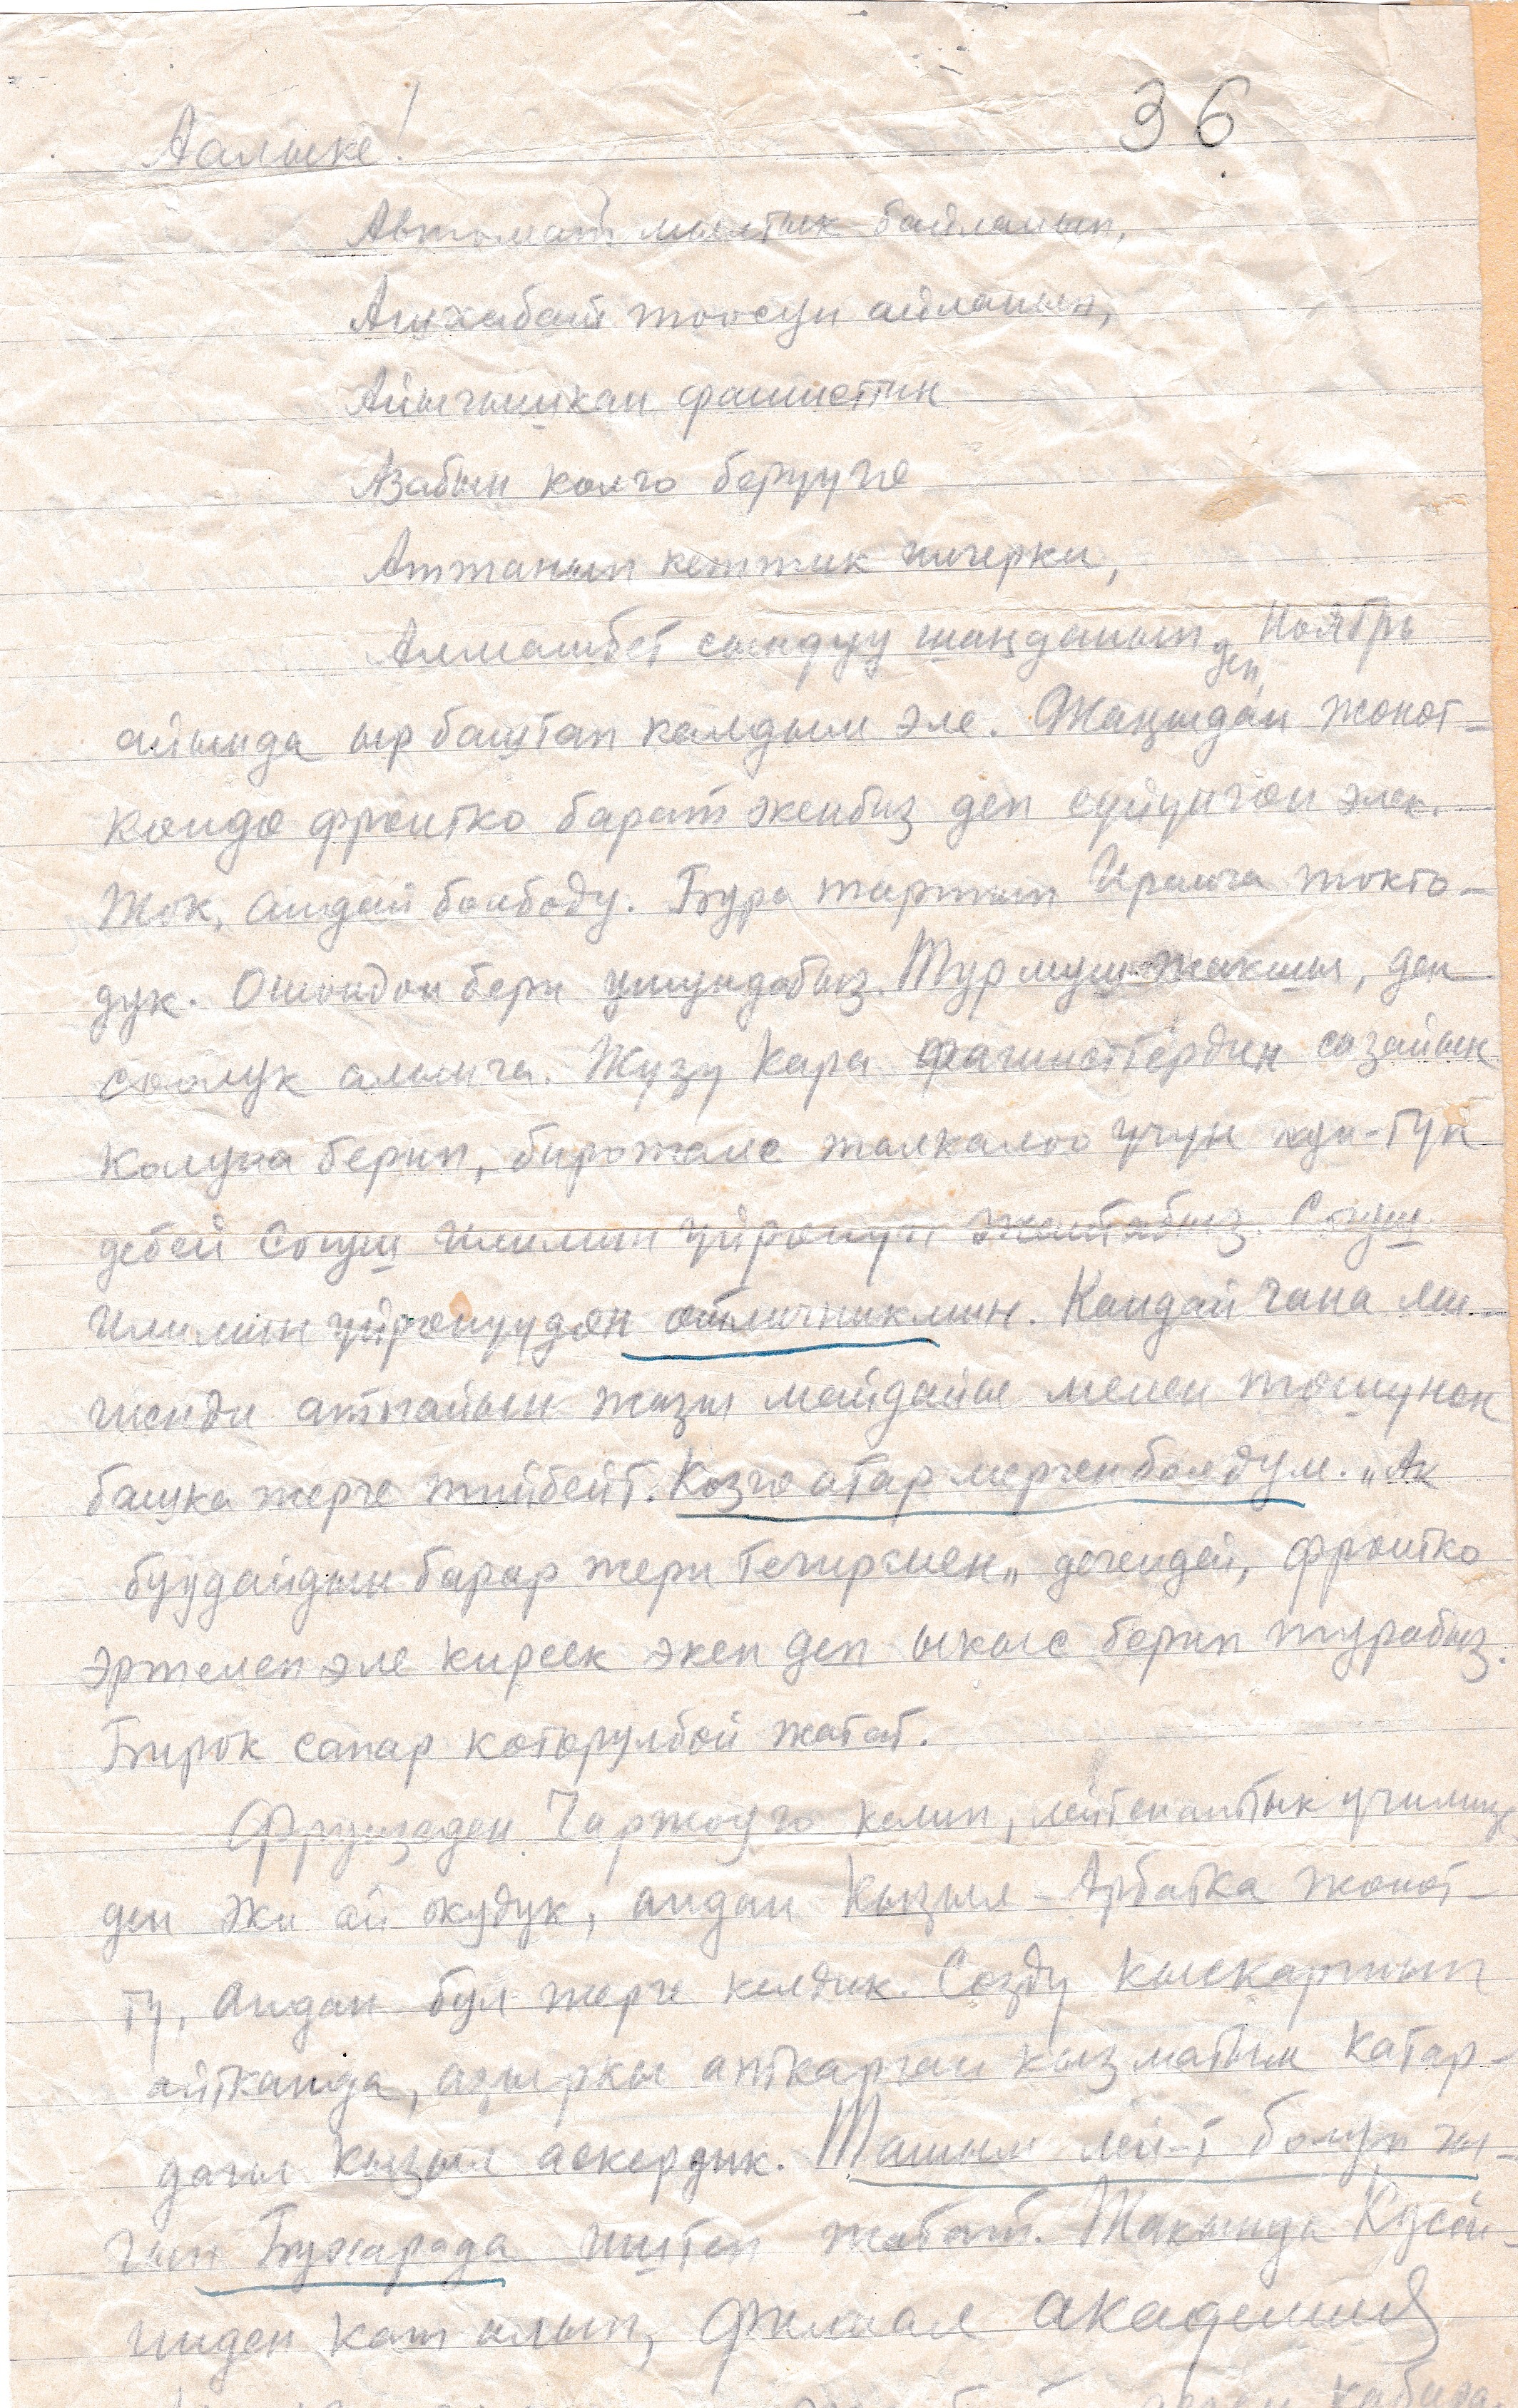 36
Аалыке!
Автомат мылтык байланып,
Ашхабат тоосун айланып,
Айыгышкан фашисттин
Азабын колго берүүгө
Аттанып кеттик илгерки,
Алмамбет сындуу шаңданып деп, Ноябрь
айында ыр баштап калдым эле. Жаңыдан жөнөт-
көндө фронтко барат экенбиз деп сүйүнгөн элек.
Жок, андай болбоду. Бура тартып Иранга токто-
дук. Ошондон бери ушундабыз. Турмуш жакшы, ден
соолук алынча. Жүзү кара фашисттердин сазайын
колуна берип, биротоло талкалоо үчүн күн-түн
дебей согуш илимин үйрөнүп жаттабыз. Согуш
илимин үйрөнүүдөн отличникмин. Кандай гана ми-
шенди атпайын жазы маңдайы менен төшүнөн
башка жерге тийбейт. Көзгө атар мерген болдум. „Ак
буудайдын барар жери тегирмен„ дегендей, фронтко
эртелеп эле кирсек экен деп ыкыс берип турабыз.
Бирок сапар көтөрүлбөй жатат.
Фрунзеден Чаржоуго келип, лейтенанттык училище-
ден эки ай окудук, андан Кызыл-Арбатка жөнөт-
тү, андан бул жерге келдик. Сөздү кыскартып
айтканда, азыркы аткарган кызматым катар-
дагы кызыл аскердик. Ташым лей-т болуп чы-
гып Бухарада иштеп жатат. Жакында Кусеи-
инден кат алып, Филиал академия